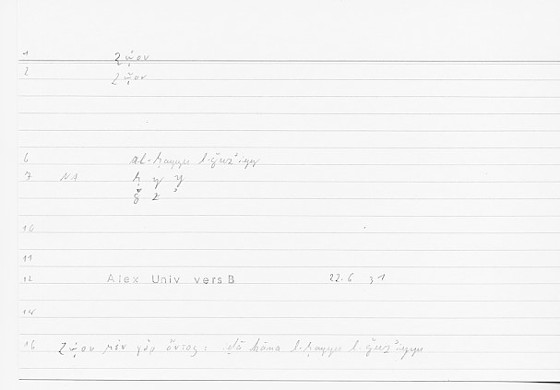 1 ζῴου
2 ζῷον
6 al-ḥayyu l-ǧuzʾiyyu
7 NA ḥ y y
ǧ z ʾ
10
11
12 Alex Univ versB 22.6 31
14
16 ζῴου μὲν γὰρ ὄντος : kāna l-ḥayyu l-ǧuzʾiyyu